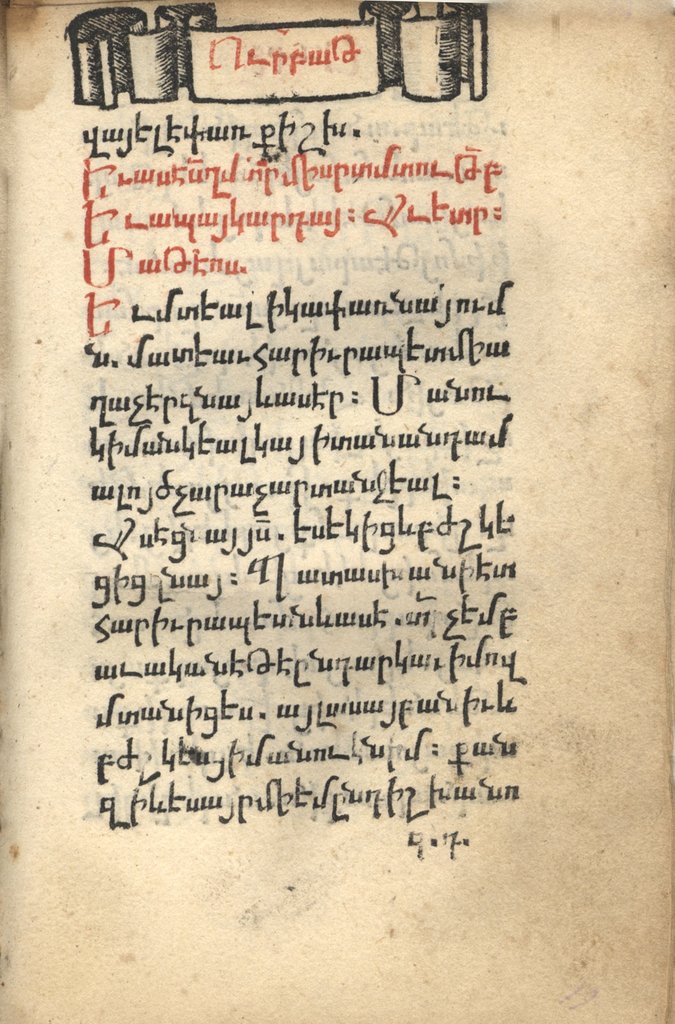 Ուրբաթ
վայելեփառ քիշխ.
Եւասեաղմ տր միսրտմտութբ
Եւապայկարդայ : Աւետր :
Մաթէոս.
Եւմտեալ իկափառնայում
ն. մատեաւ հարիւրապետ միա
ղաչէր զնայ ևասէր : Մանու
կիմ անկեալ կայ իտան անդամ
ալոյծ չարաչար տանջեալ :
Ասէ ցնա յյս. ես եկից և բժշկե
ցից զնայ : Պատասխանի ետ
հարիւրապետն ևասէ. տր չեմ բ
աւական եթե ընդարկաւ իմով
մտանիցես. այլ ասայ բանիւ և
բժշկեսցի մանուկն իմ : քան
զի ևես այր մի եմ ընդ իշխանո
գ.դ.